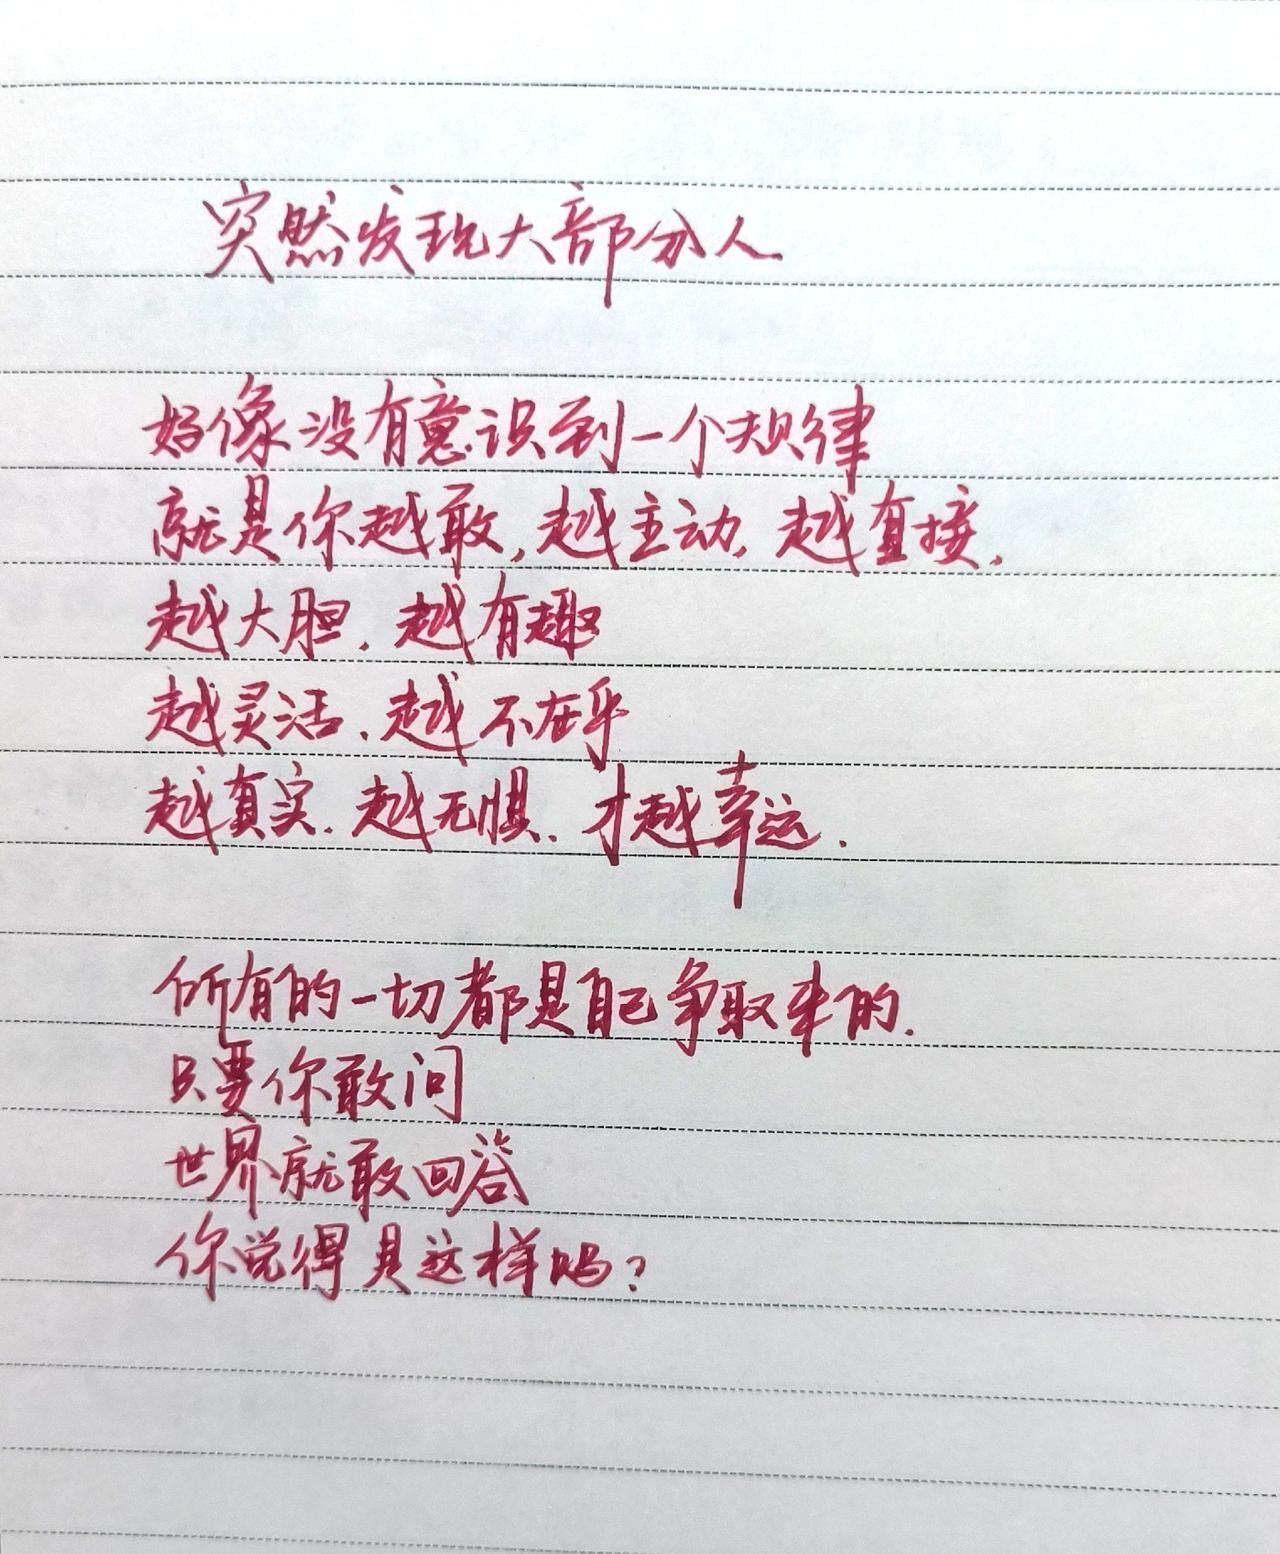 突然发现大部分人
好像没有意识到一个规律
就是你越敢,越主动,越直接,
越大胆,越有趣
越灵活,越不在乎
越真实,越无惧,才越幸运.
所有的一切都是自己争取来的.
只要你敢问
世界就敢回答
你说得是这样吗?